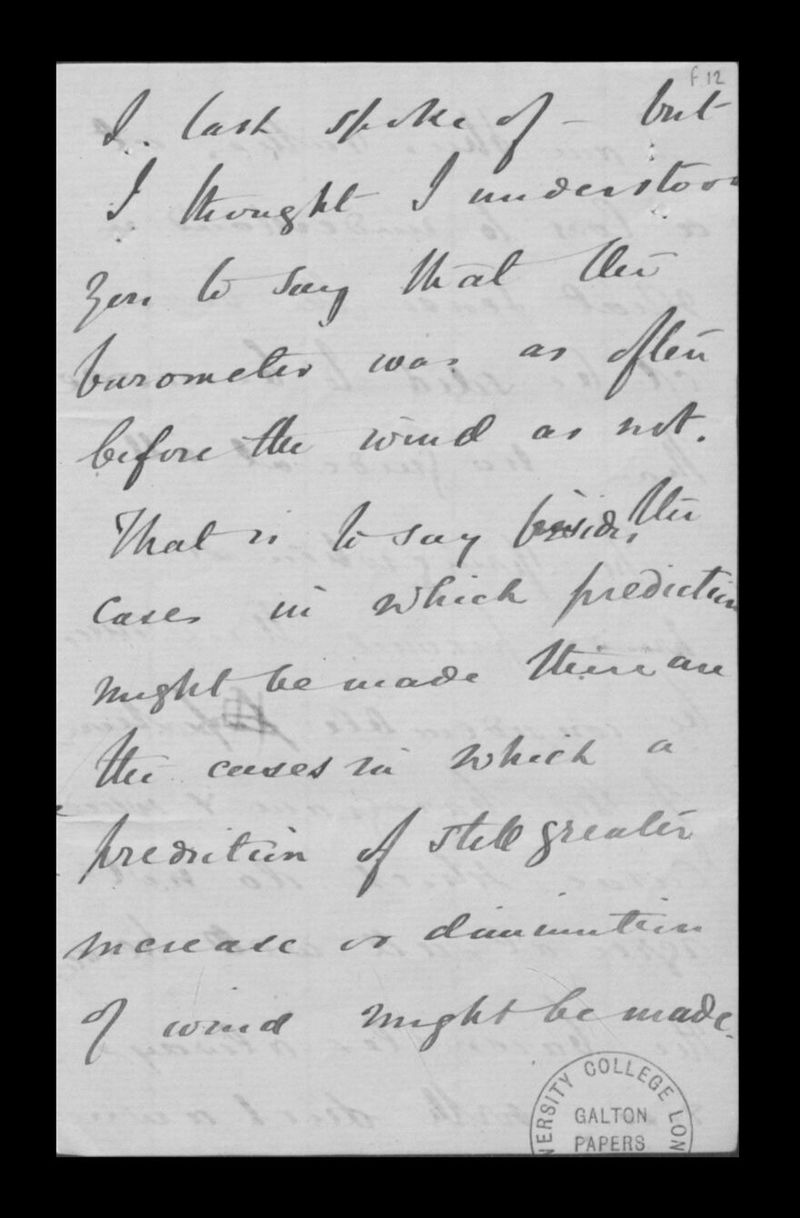 f. 12
I last spoke of — but
I thought I understood
you to say that the
barometer was as often
before the wind as not.
That is to say besides the
cases in which prediction
might be made there are
the cases in which a
prediction of still greater
increase or diminution
of wind might be made.
VERSITY COLLEGE LON
GALTON
PAPERS